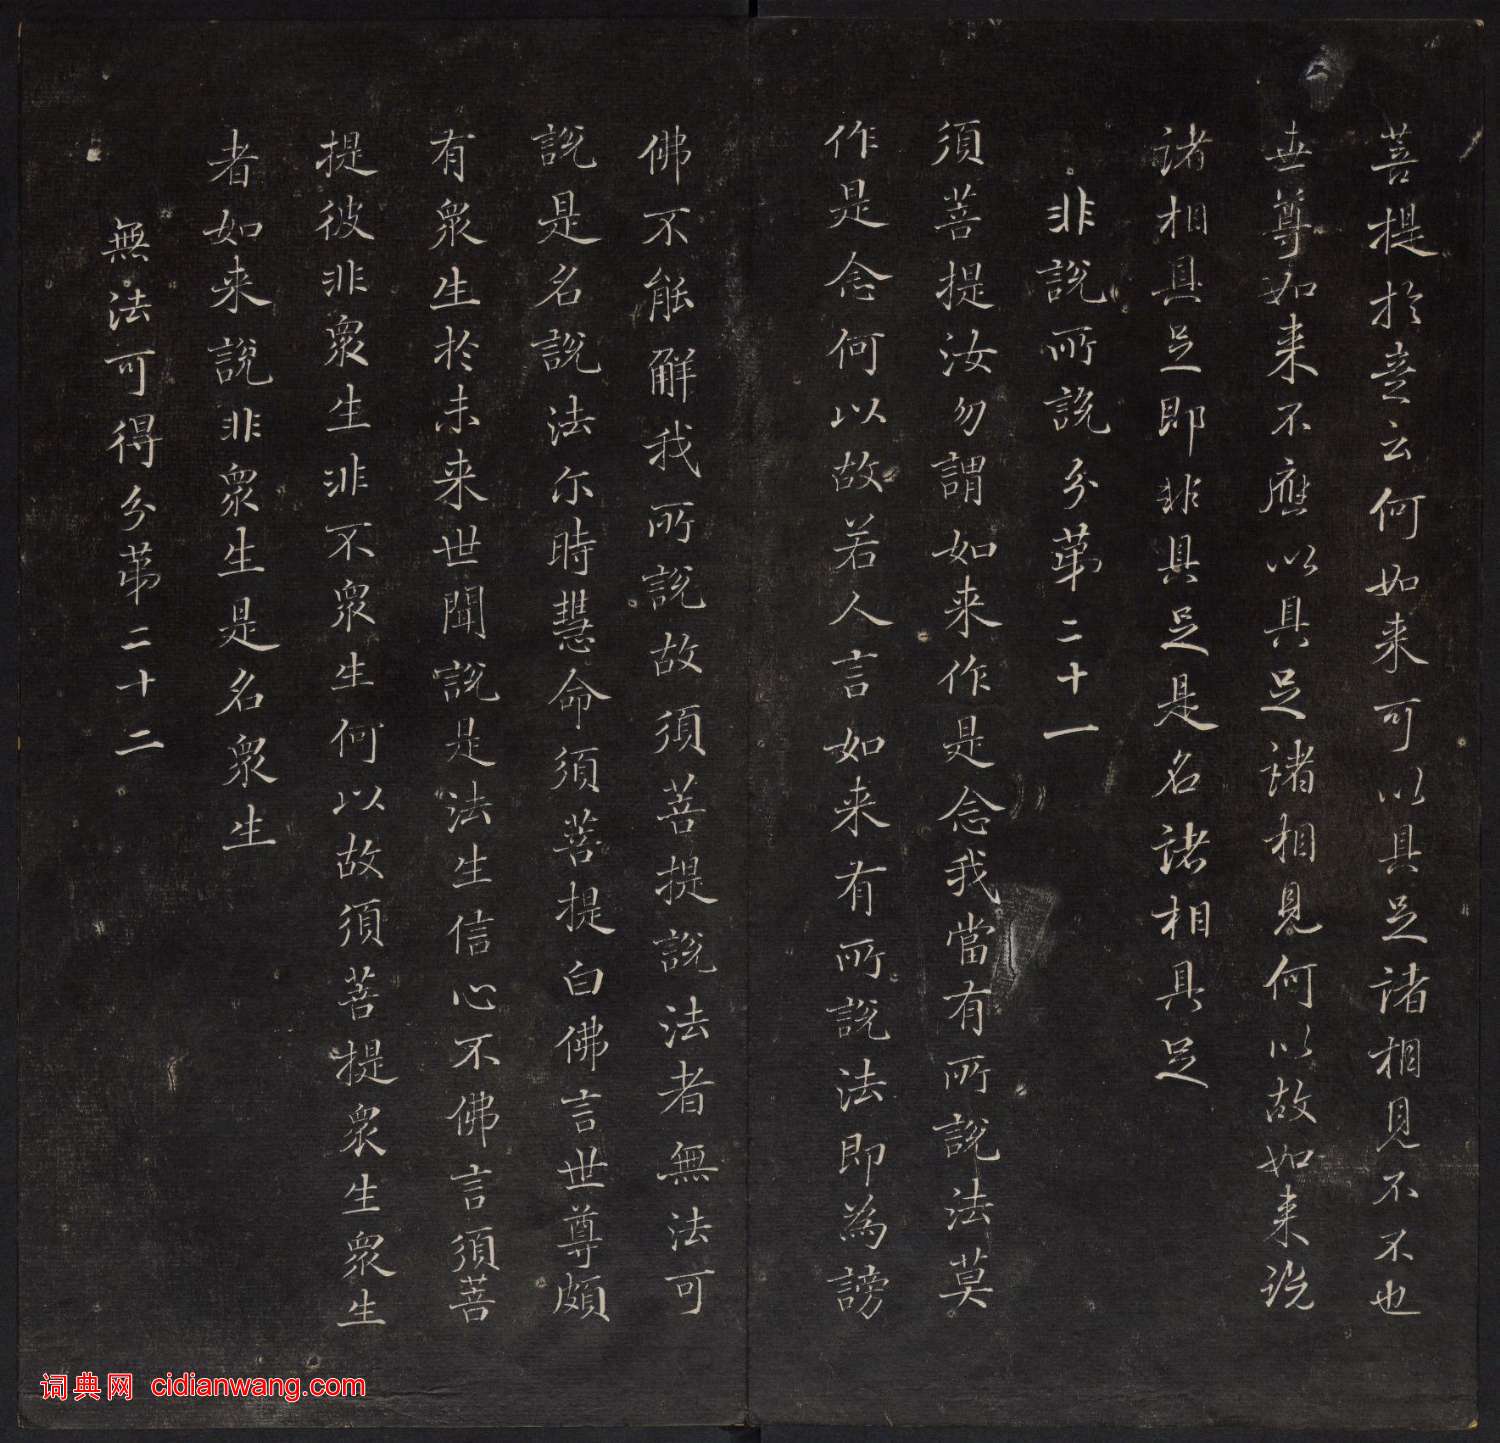 菩提於意云何如来可以具足諸相見不不也
世尊如来不應以具足諸相見何以故如来説
諸相具足即非具足是名諸相具足
非說所說分第二十一
須菩提汝勿謂如来作是念我當有所說法莫
作是念何以故若人言如来有所說法即為謗
佛不能解我所說故須菩提說法者無法可
說是名說法尔時慧命須菩提白佛言世尊頗
有衆生於未来世聞說是法生信心不佛言須菩
提彼非衆生非不衆生何以故須菩提衆生衆生
者如来說非衆生是名衆生
無法可得分第二十二
词典网 cidianwang.com